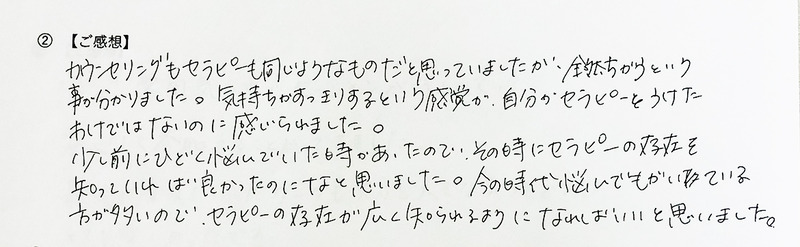 ② 【ご感想】
カウンセリングもセラピーも同じようなものだと思っていましたが、全然ちがうという
事が分かりました。気持ちがすっきりするという感覚が、自分がセラピーをうけた
わけではないのに感じられました。
少し前にひどく悩んでいた時があったので、その時にセラピーの存在を
知っていれば良かったのになと思いました。今の時代悩んでもがいている
方が多いので、セラピーの存在が広く知られるようになればいいと思いました。